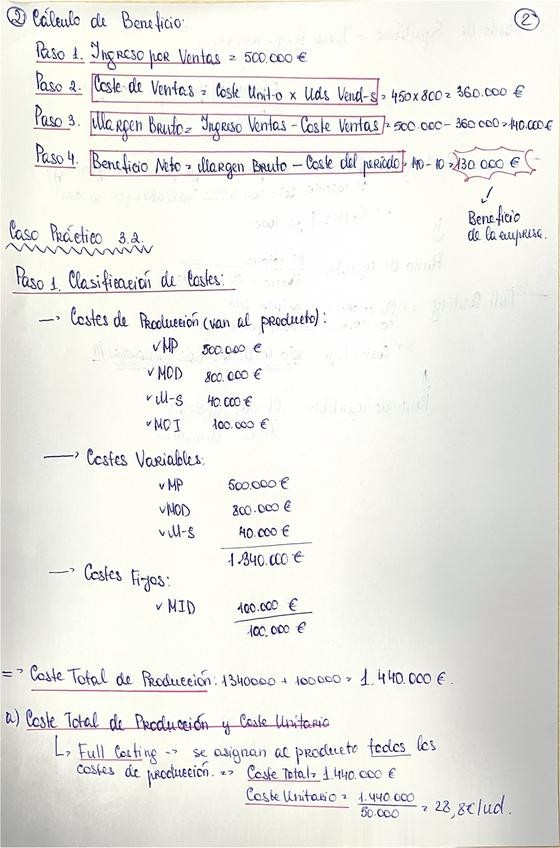 ② Cálculo de Beneficio: ②
Paso 1. Ingreso por Ventas = 500.000 €
Paso 2. Coste de Ventas = Coste Unit-o x Uds Vend-s = 450 x 800 = 360.000 €
Paso 3. Margen Bruto = Ingreso Ventas - Coste Ventas = 500.000 - 360.000 = 140.000 €
Paso 4. Beneficio Neto = Margen Bruto - Coste del período = 140 - 10 = 130.000 €
Beneficio
de la empresa.
Caso Práctico 3.2.
Paso 1. Clasificación de Costes:
→ Costes de Producción (van al producto):
✓ MP 500.000 €
✓ MOD 800.000 €
✓ M-S 40.000 €
✓ MOI 100.000 €
→ Costes Variables:
✓ MP 500.000 €
✓ MOD 800.000 €
✓ M-S 40.000 €
1.340.000 €
→ Costes Fijos:
✓ MID 100.000 €
100.000 €
=> Coste Total de Producción: 1340000 + 100000 = 1.440.000 €.
a) Coste Total de Producción y Coste Unitario
↳ Full Costing → se asignan al producto todos los
costes de producción. => Coste Total = 1.440.000 €
Coste Unitario = 1.440.000 / 50.000 = 28,8 €/ud.